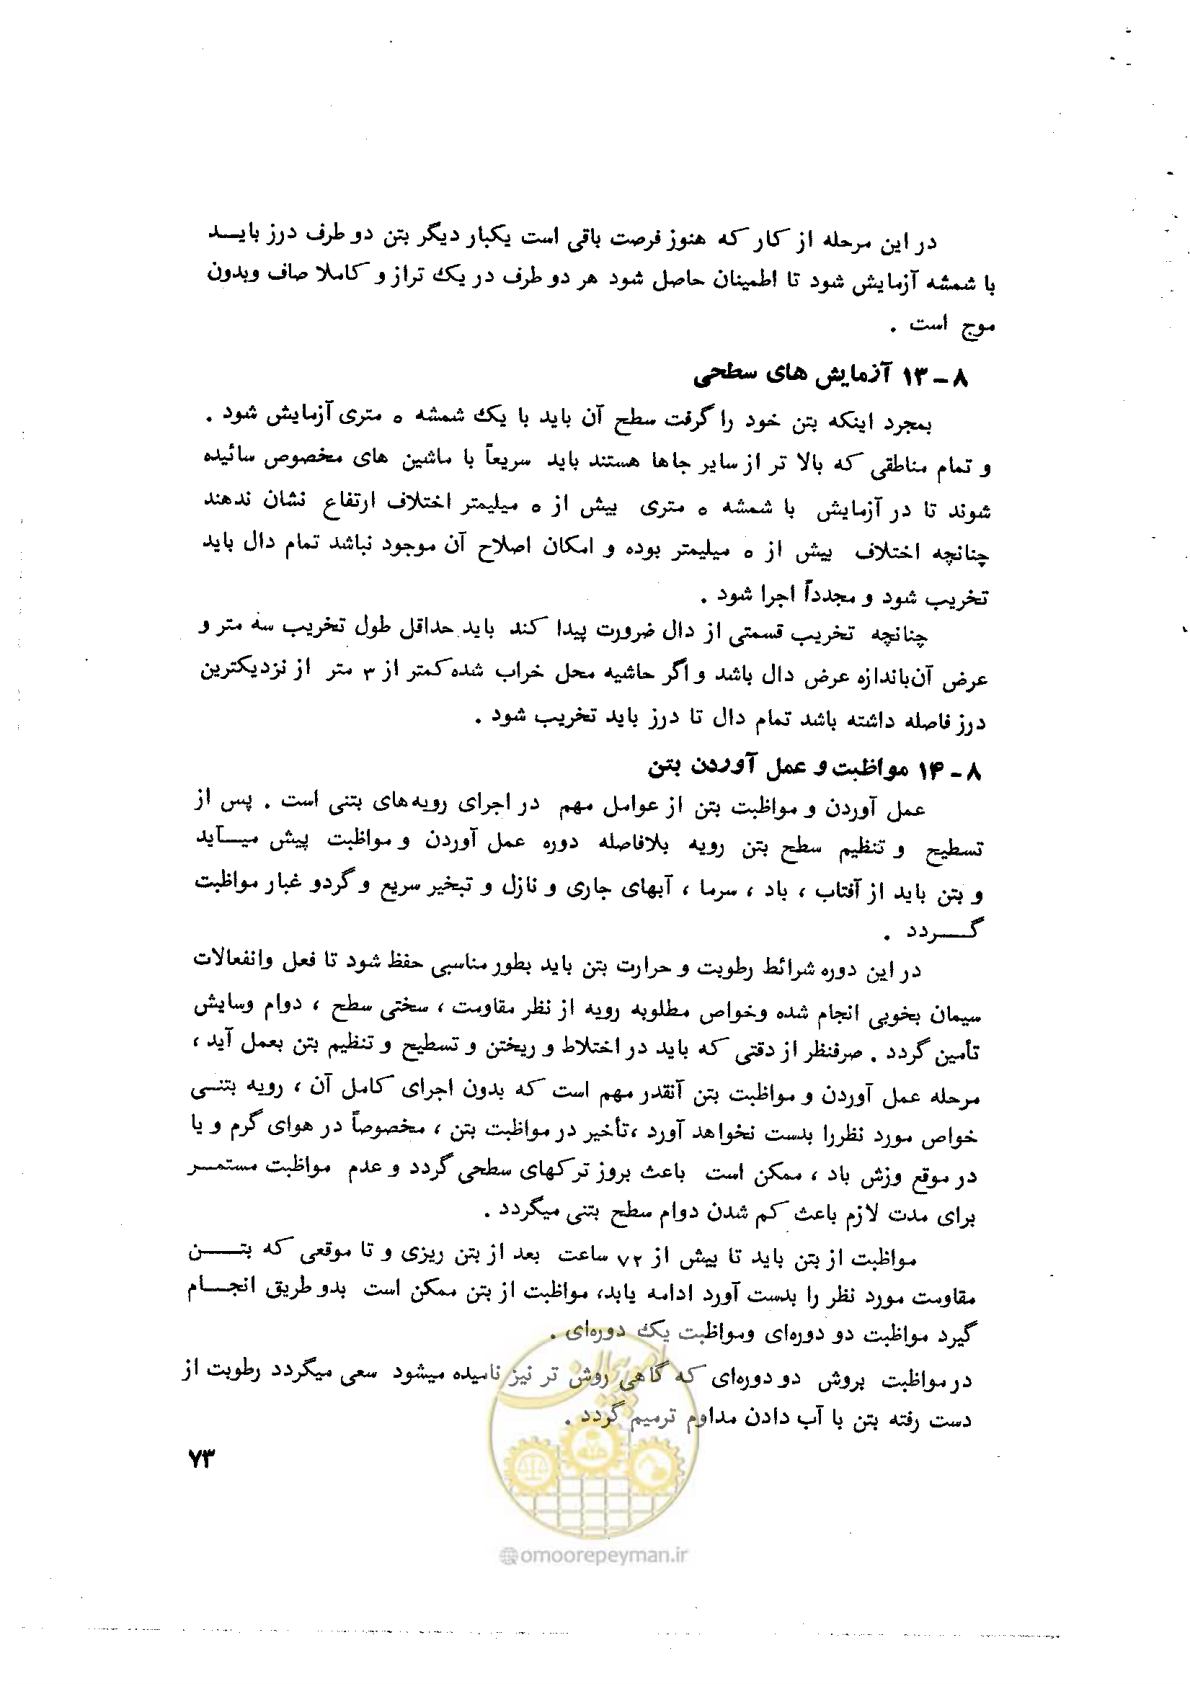 در این مرحله از کار که هنوز فرصت باقی است یکبار دیگر بتن دو طرف درز بایـــد
با شمشه آزمایش شود تا اطمینان حاصل شود هر دو طرف در یک تراز و کاملا صاف وبدون
موج است .
۸ - ۱۳ آزمایش های سطحی
بمجرد اینکه بتن خود را گرفت سطح آن باید با یک شمشه ۵ متری آزمایش شود .
و تمام مناطقی که بالا تر از سایر جاها هستند باید سریعاً با ماشین های مخصوص سائیده
شوند تا در آزمایش با شمشه ۵ متری بیش از ۵ میلیمتر اختلاف ارتفاع نشان ندهند
چنانچه اختلاف بیش از ۵ میلیمتر بوده و امکان اصلاح آن موجود نباشد تمام دال باید
تخریب شود و مجدداً اجرا شود .
چنانچه تخریب قسمتی از دال ضرورت پیدا کند باید حداقل طول تخریب سه متر و
عرض آن‌باندازه عرض دال باشد و اگر حاشیه محل خراب شده کمتر از ۳ متر از نزدیکترین
درز فاصله داشته باشد تمام دال تا درز باید تخریب شود .
۸ - ۱۴ مواظبت و عمل آوردن بتن
عمل آوردن و مواظبت بتن از عوامل مهم در اجرای رویه‌های بتنی است . پس از
تسطیح و تنظیم سطح بتن رویه بلافاصله دوره عمل آوردن و مواظبت پیش میـــآید
و بتن باید از آفتاب ، باد ، سرما ، آبهای جاری و نازل و تبخیر سریع و گردو غبار مواظبت
گـــردد .
در این دوره شرائط رطوبت و حرارت بتن باید بطور مناسبی حفظ شود تا فعل وانفعالات
سیمان بخوبی انجام شده وخواص مطلوبه رویه از نظر مقاومت ، سختی سطح ، دوام وسایش
تأمین گردد . صرفنظر از دقتی که باید در اختلاط و ریختن و تسطیح و تنظیم بتن بعمل آید ،
مرحله عمل آوردن و مواظبت بتن آنقدر مهم است که بدون اجرای کامل آن ، رویه بتنـــی
خواص مورد نظررا بدست نخواهد آورد ،تأخیر در مواظبت بتن ، مخصوصاً در هوای گرم و یا
در موقع وزش باد ، ممکن است باعث بروز ترکهای سطحی گردد و عدم مواظبت مستمـــر
برای مدت لازم باعث کم شدن دوام سطح بتنی میگردد .
مواظبت از بتن باید تا بیش از ۷۲ ساعت بعد از بتن ریزی و تا موقعی که بتـــن
مقاومت مورد نظر را بدست آورد ادامه یابد، مواظبت از بتن ممکن است بدو طریق انجـــام
گیرد مواظبت دو دوره‌ای ومواظبت یک دوره‌ای .
در مواظبت بروش دو دوره‌ای که گاهی روش تر نیز نامیده میشود سعی میگردد رطوبت از
دست رفته بتن با آب دادن مداوم ترمیم گردد .
۷۳
امور پیمان
@omoorepeyman.ir